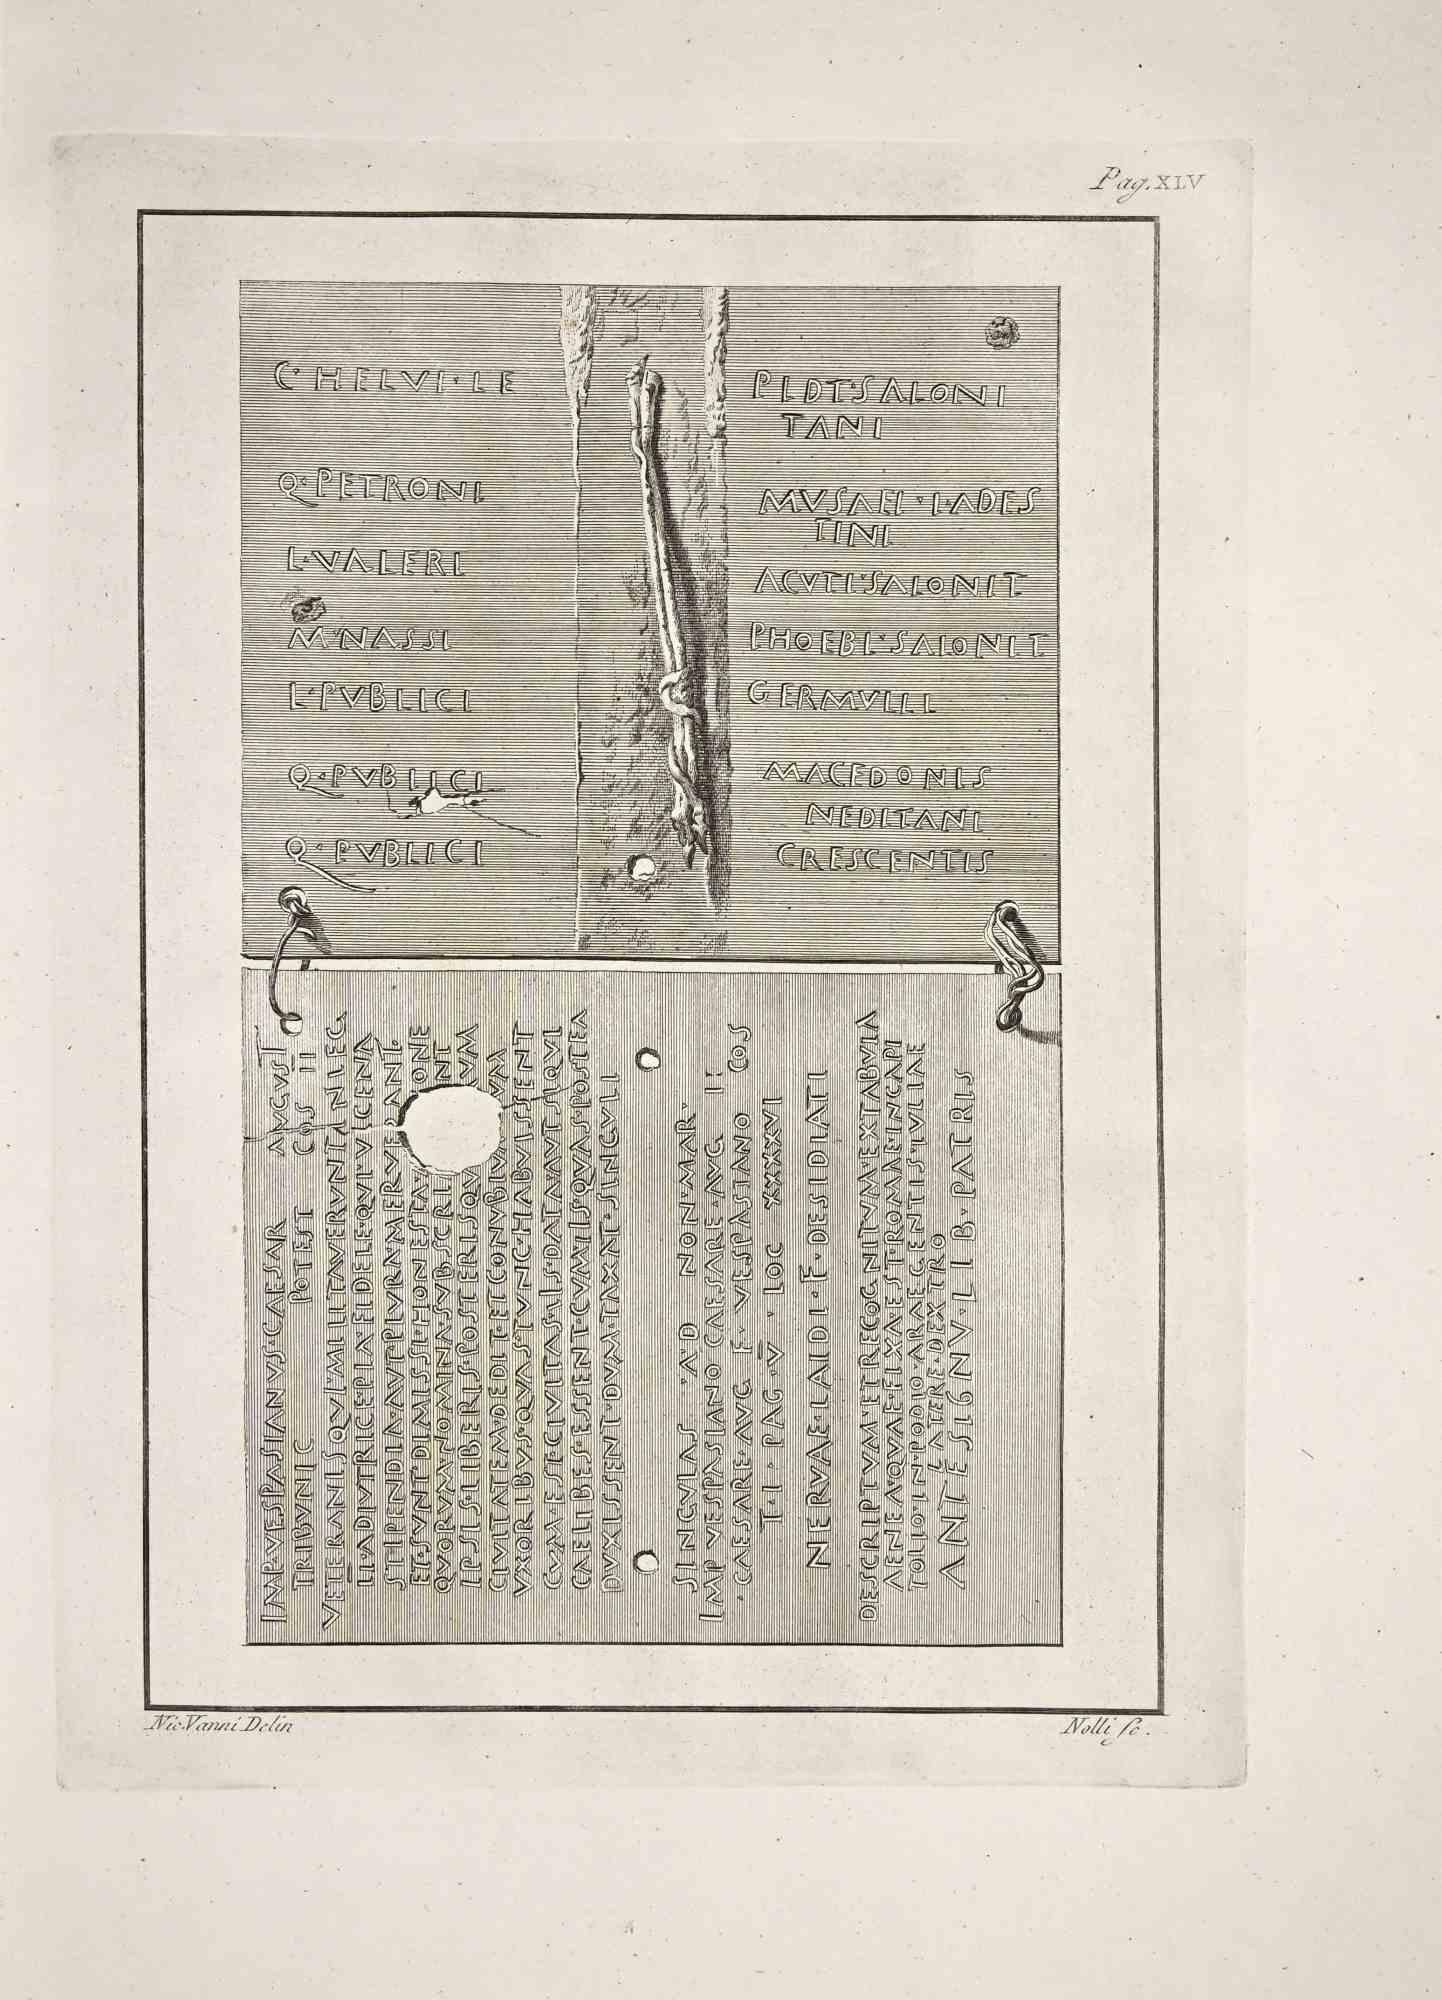 Pag. XLV
C · HELVI · LE
Q · PETRONI
L · VALERI
M · NASSI
L · PVBLICI
Q · PVBLICI
Q · PVBLICI
PIDI · SALONI
TANI
MVSAEI · IADES
TINI
ACVTI · SALONIT
PHOEBI · SALONIT
GERMVLLI
MACEDONIS
NEDITANI
CRESCENTIS
IMP · VESPASIANVS · CAESAR AVGVST
TRIBVNIC POTEST COS II
VETERANIS QVI MILITAVERVNT IN LEG
II · ADIVTRICE PIA FIDELE · QVI · VICENA
STIPENDIA · AVT PLVRA · MERVERANT ·
ET · SVNT DIMISSI · HONESTA ONE
QVORVM · NOMINA · SVBSCRI NT
IPSIS · LIBERIS · POSTERISQV VM
CIVITATEM · DEDIT · ET CONVBIV VM
VXORIBVS · QVAS · TVNC · HABVISSENT
CVM · EST · CIVITAS · IS · DATA · AVT SIQVI
CAELIBES · ESSENT · CVM IIS QVAS · POSTEA
DVXISSENT · DVM · TAXAT · SINGVLI
SINGVLAS · A · D NON · MAR ·
IMP VESPASIANO CAESARE · AVG II
· CAESARE · AVG F · VESPASIANO COS
T · I · PAG · V · LOC XXXXVI
NERVAE · LAIDI · F · DESIDIATI
DESCRIPTVM · ET RECOGNITVM · EX TABVLA
AENEA · QVAE · FIXA · EST · ROMAE · IN CAPI
TOLIO · IN · PODIO · ARAE GENTIS · IVLIAE
LATERE · DEXTRO
ANTE SIGNV · LIB · PATRIS
Nic. Vanni Delin
Nolli sc.